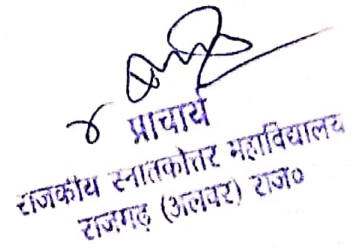 प्राचार्य
राजकीय स्नातकोत्तर महाविद्यालय
राजगढ़ (अलवर) राज०